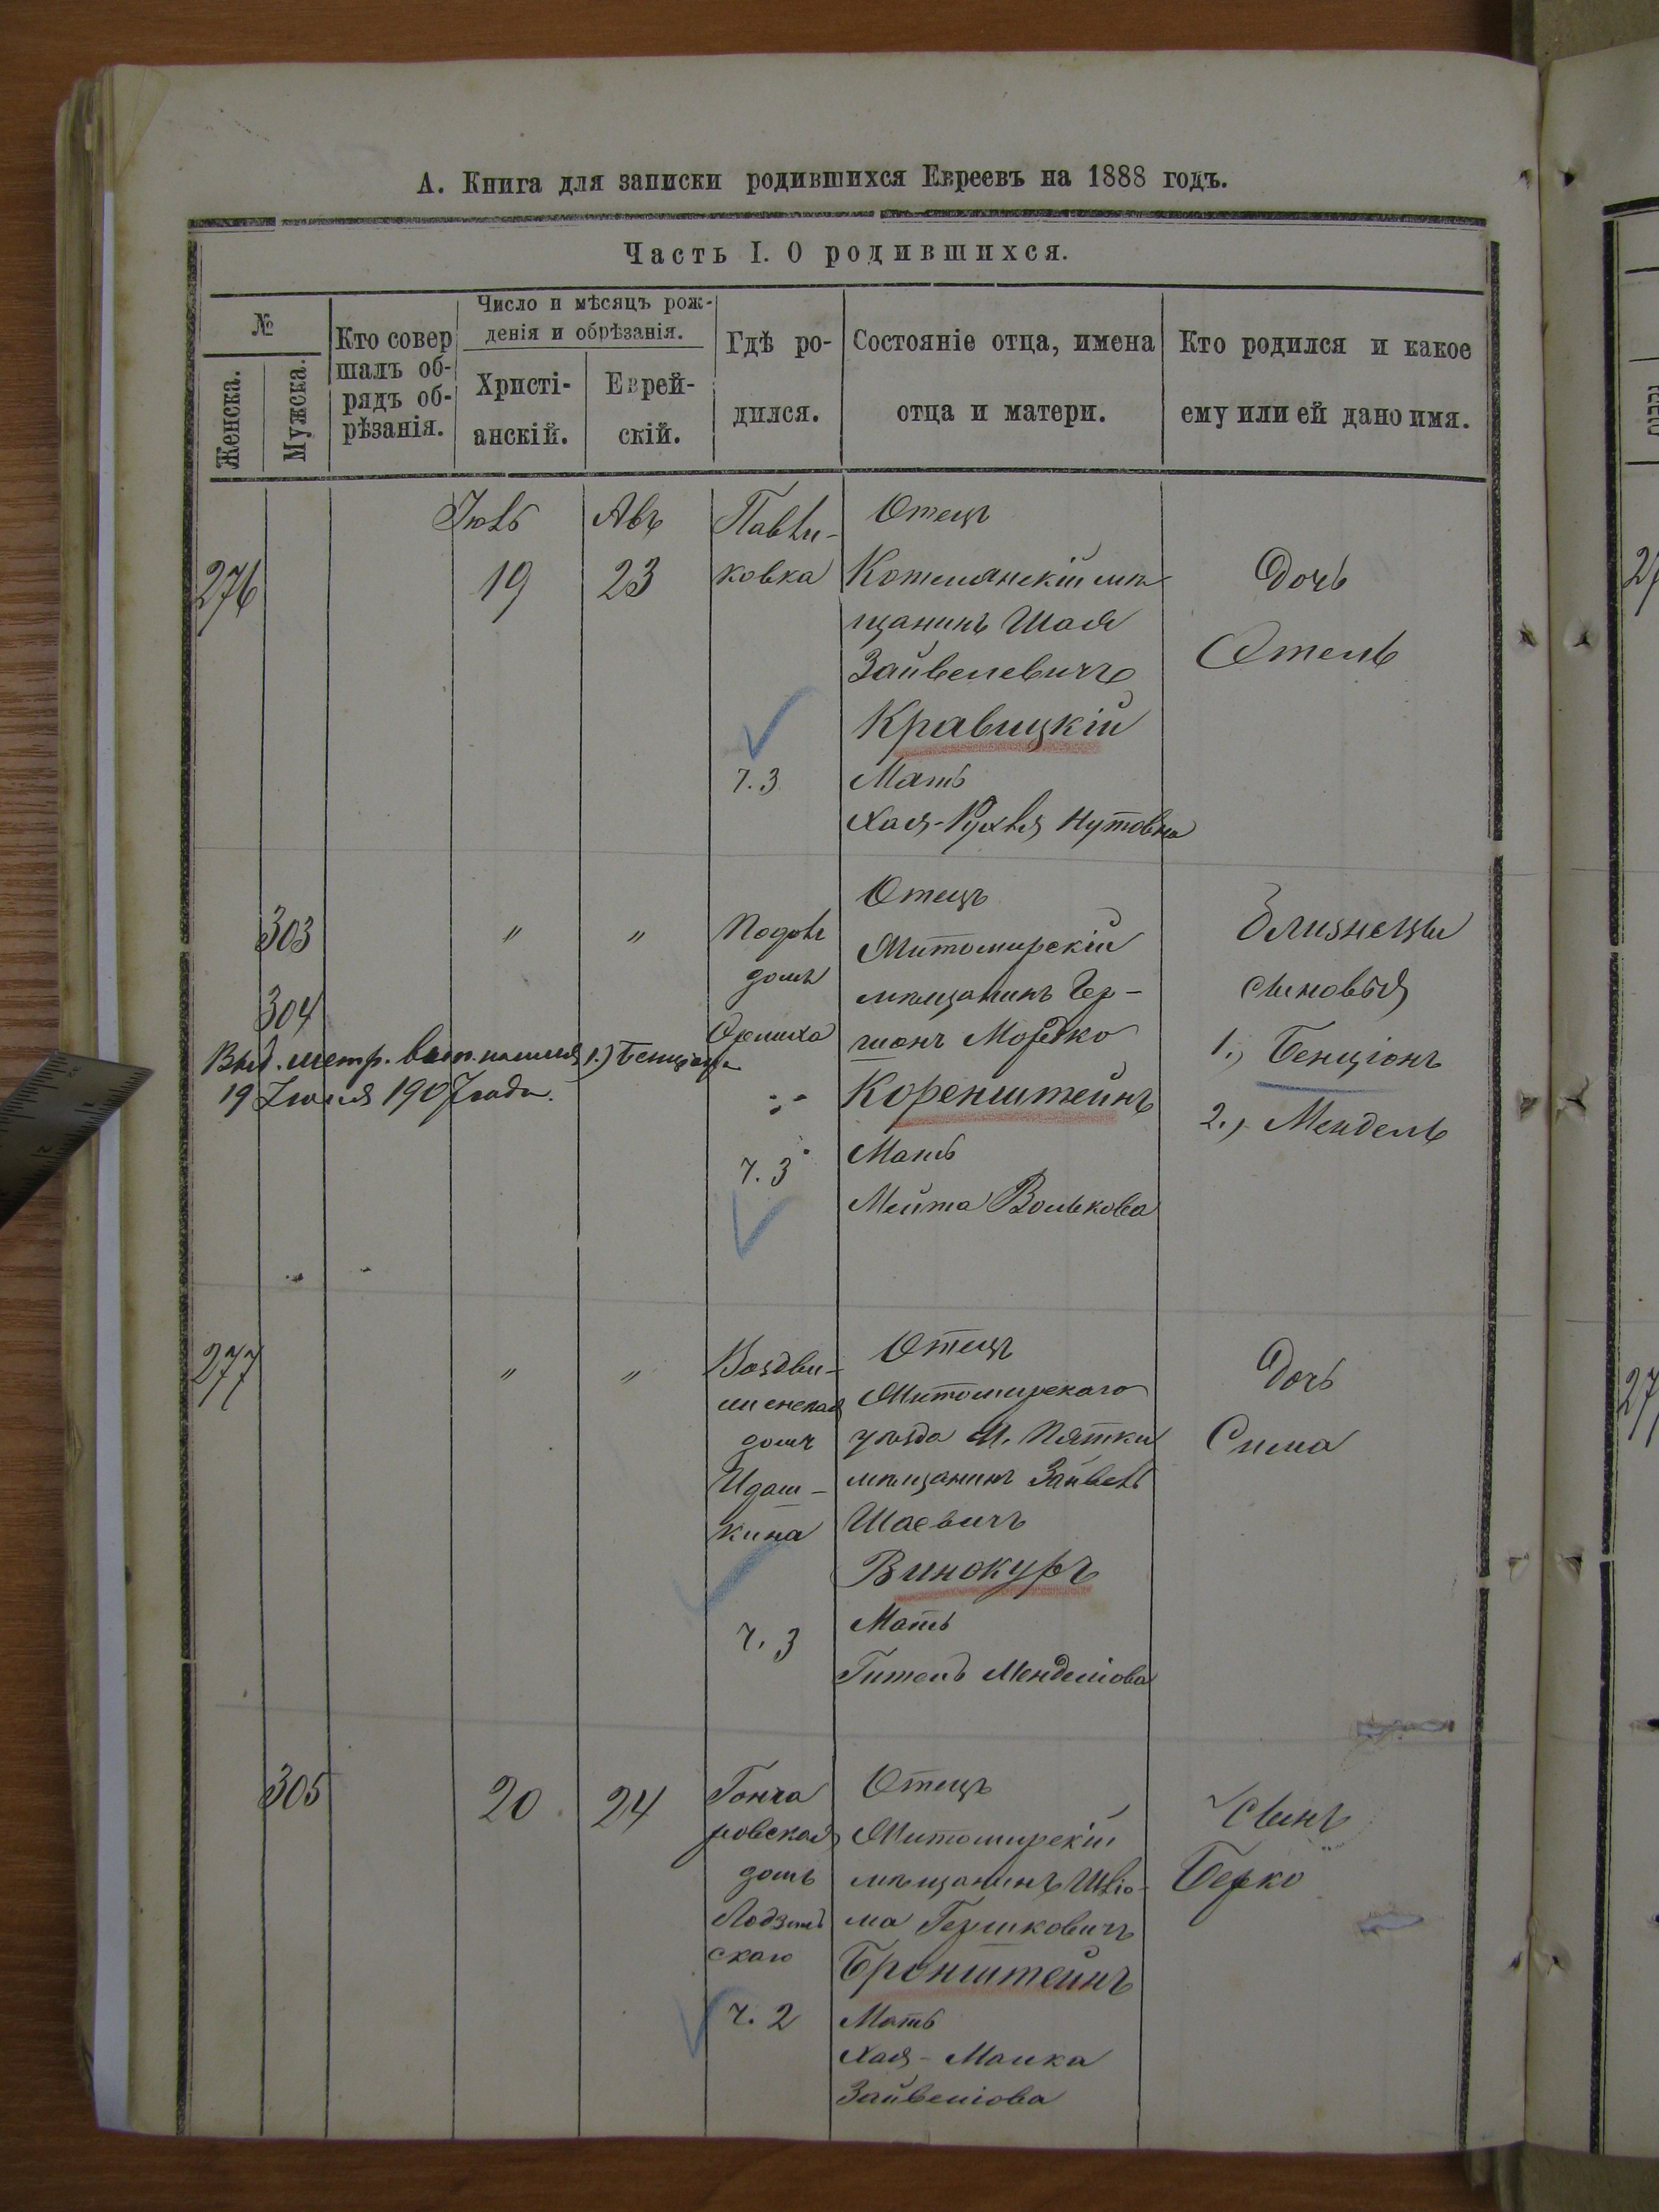 А. Книга для записки родившихся Евреевъ на 1888 годъ.
Часть I. О родившихся.
№
Женска.
Мужска.
Кто совер
шалъ об-
рядъ об-
рѣзанія.
Число и мѣсяцъ рож-
денія и обрѣзанія.
Христі-
анскій.
Еврей-
скій.
Гдѣ ро-
дился.
Состояніе отца, имена
отца и матери.
Кто родился и какое
ему или ей дано имя.
276
Іюль
19
Авъ
23
Павли-
ковка
ч. 3
Отецъ
Котелянскій мѣ-
щанинъ Шая
Зайвелевичъ
Кравицкій
Мать
Хая-Рухля Нутовна
Дочь
Этель
303
304
"
"
Выд. метр. вып. на имя 1.) Бенціона
19 Іюля 1907 года.
дома
ч. 3
Отецъ
Житомирскій
мѣщанинъ Гер-
шонъ Мордко
Коренштейнъ
Мать
Мейта Волькова
Близнецы
сыновья
1., Бенціонъ
2., Мендель
277
"
"
Воздви-
женская
домъ
Идаш-
кина
ч. 3
Отецъ
Житомирскаго
уѣзда М. Пятки
мѣщанинъ Зайвель
Шаевичъ
Винокуръ
Мать
Гитель Менделiова
Дочь
Сима
305
20
24
Гонча
ровская
домъ
скаго
ч. 2
Отецъ
Житомирскій
мѣщанинъ Шліо-
ма Гершковичъ
Бронштейнъ
Мать
Хая-Малка
Зайвеліова
Сынъ
Берко